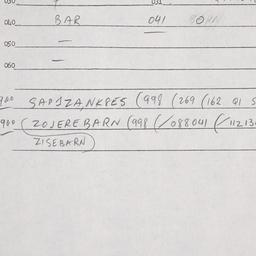 040 BAR 041
050 —
060 —
900 SADJZA,NKPES (998 (269 (162 91 S
900 (ZOJEREBARN (998 (/088041 (/11213
ZISEBARN)